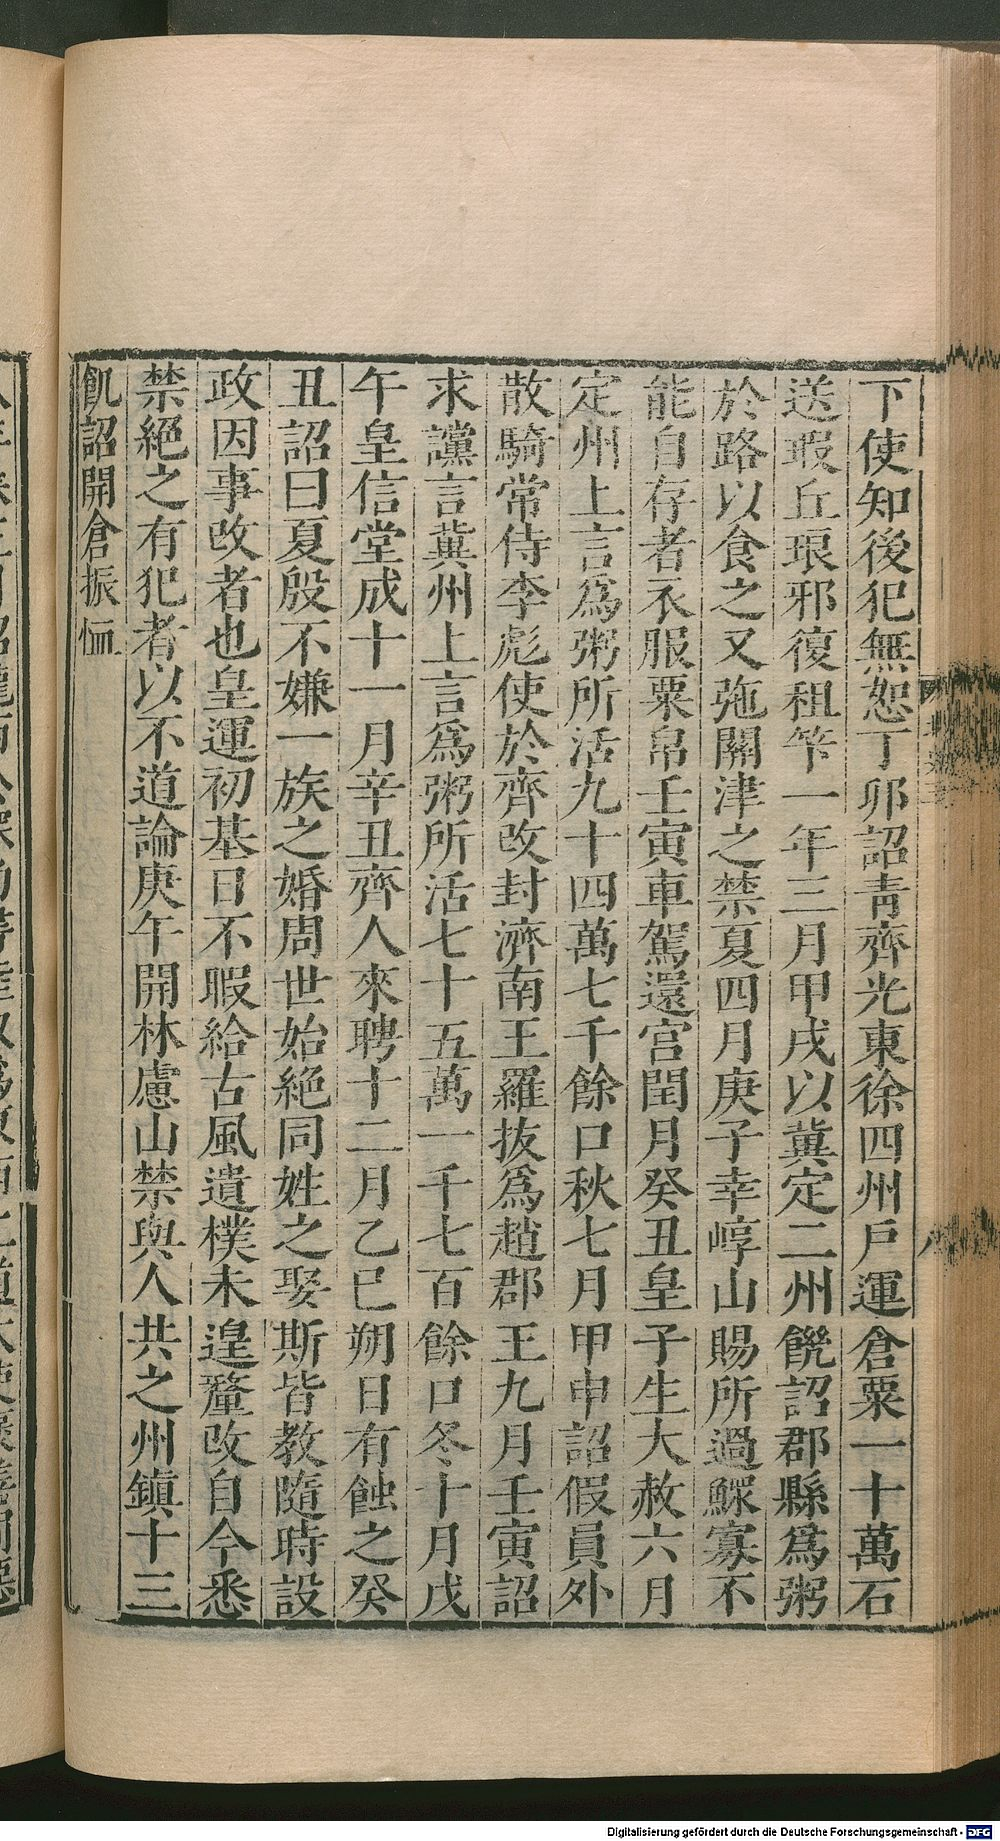 下使知後犯無恕丁卯詔青齊光東徐四州戶運倉粟一十萬石
送瑕丘琅邪復租筭一年三月甲戌以冀定二州饑詔郡縣爲粥
於路以食之又弛關津之禁夏四月庚子幸崞山賜所過鰥寡不
能自存者衣服粟帛壬寅車駕還宮閏月癸丑皇子生大赦六月
定州上言爲粥所活九十四萬七千餘口秋七月甲申詔假員外
散騎常侍李彪使於齊改封濟南王羅拔爲趙郡王九月壬寅詔
求讜言冀州上言爲粥所活七十五萬一千七百餘口冬十月戊
午皇信堂成十一月辛丑齊人來聘十二月乙巳朔日有蝕之癸
丑詔曰夏殷不嫌一族之婚周世始絕同姓之娶斯皆教隨時設
政因事改者也皇運初基日不暇給古風遺樸未遑釐改自今悉
禁絕之有犯者以不道論庚午開林慮山禁與人共之州鎮十三
飢詔開倉振恤
Digitalisierung gefördert durch die Deutsche Forschungsgemeinschaft - DFG